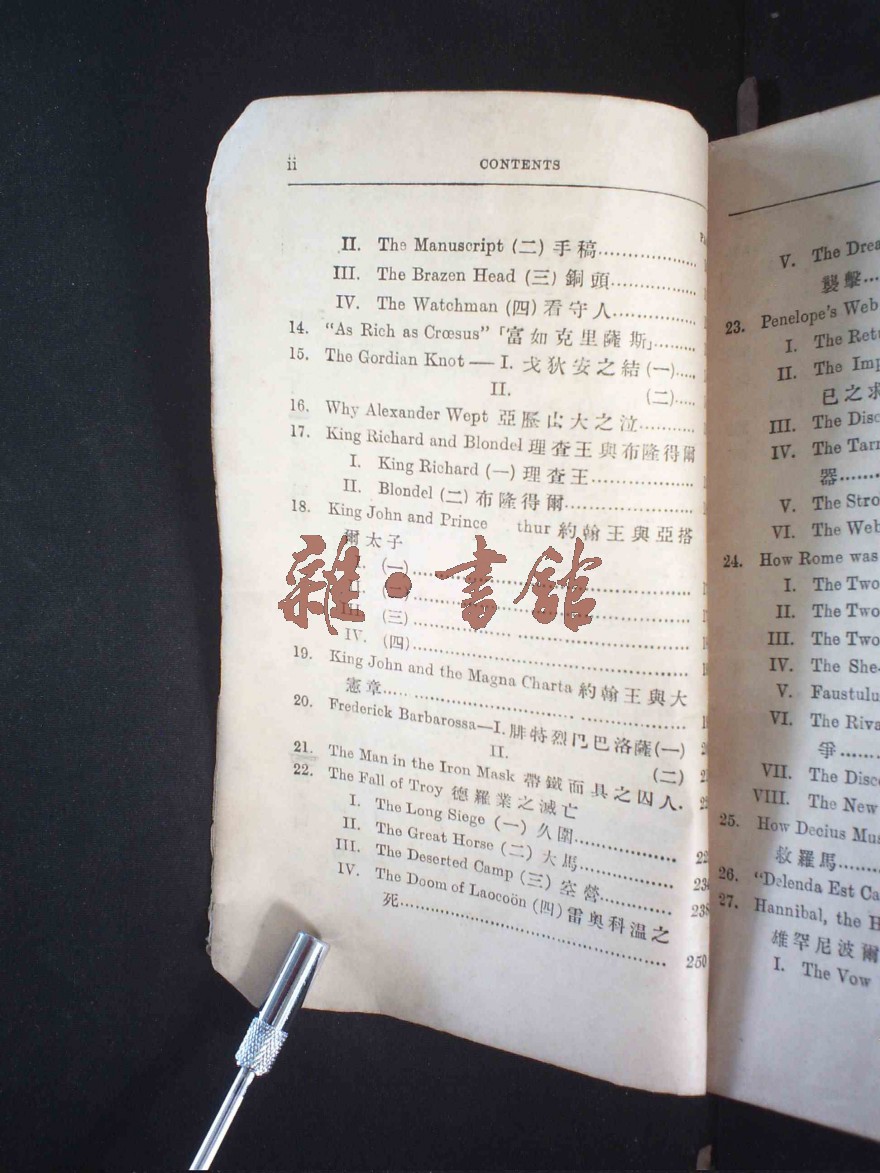 ii CONTENTS
II. The Manuscript (二) 手稿
III. The Brazen Head (三) 銅頭
IV. The Watchman (四) 看守人
14. "As Rich as Crœsus"「富如克里薩斯」
15. The Gordian Knot — I. 戈狄安之結 (一)
II. (二)
16. Why Alexander Wept 亞歷山大之泣
17. King Richard and Blondel 理查王與布隆得爾
I. King Richard (一) 理查王
II. Blondel (二) 布隆得爾
18. King John and Prince thur 約翰王與亞搭
爾太子
I. (一)
III. (三)
IV. (四)
19. King John and the Magna Charta 約翰王與大
憲章
20. Frederick Barbarossa—I. 腓特烈巴巴洛薩(一)
II. (二)
21. The Man in the Iron Mask 帶鐵面具之囚人
22. The Fall of Troy 德羅業之滅亡
I. The Long Siege (一) 久圍
II. The Great Horse (二) 大馬
III. The Deserted Camp (三) 空營
IV. The Doom of Laocoön (四) 雷奧科温之
死 250
雜·書館
V. The
襲擊
23. Penelope's Web
I. The
II. The
已之求
III. The
IV. The
器
V. The
VI. The Web
24. How Rome was
I. The Two
II. The Two
III. The Two
IV. The
V.
VI. The
爭
VII. The
VIII. The New
25. How Decius
救羅馬
26. "Delenda Est
27. Hannibal, the
雄罕尼波爾
I. The Vow